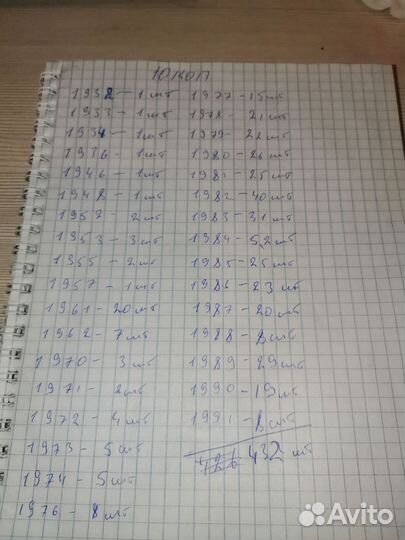 10 коп
1932 - 1 шт
1933 - 1 шт
1934 - 1 шт
1936 - 1 шт
1946 - 1 шт
1948 - 1 шт
1952 - 2 шт
1953 - 3 шт
1955 - 2 шт
1957 - 1 шт
1961 - 20 шт
1962 - 7 шт
1970 - 3 шт
1971 - 2 шт
1972 - 4 шт
1973 - 5 шт
1974 - 5 шт
1976 - 8 шт
1977 - 15 шт
1978 - 21 шт
1979 - 22 шт
1980 - 26 шт
1981 - 25 шт
1982 - 40 шт
1983 - 31 шт
1984 - 52 шт
1985 - 25 шт
1986 - 23 шт
1987 - 20 шт
1988 - 8 шт
1989 - 29 шт
1990 - 19 шт
1991 - 8 шт
432 шт
Avito